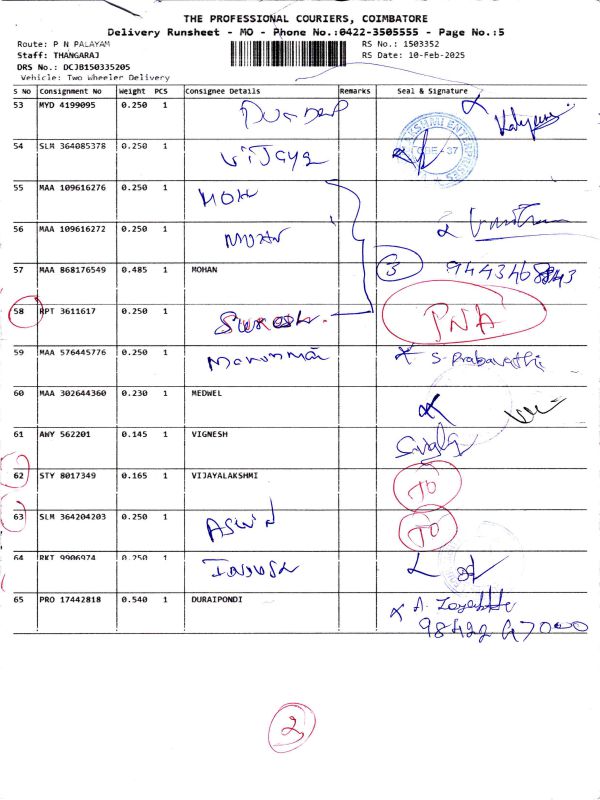 THE PROFESSIONAL COURIERS, COIMBATORE
Delivery Runsheet - MO - Phone No.:0422-3505555 - Page No.:5
Route: P N PALAYAM RS No.: 1503352
Staff: THANGARAJ RS Date: 10-Feb-2025
DRS No.: DCJB150335205
Vehicle: Two Wheeler Delivery
S No Consignment No Weight PCS Consignee Details Remarks Seal & Signature
53 MYD 4199095 0.250 1
54 SLM 364085378 0.250 1 VIJAYA
55 MAA 109616276 0.250 1 MOHN
56 MAA 109616272 0.250 1 MOHN
57 MAA 868176549 0.485 1 MOHAN 3 9443468843
58 RPT 3611617 0.250 1 Suresh. PNA
59 MAA 576445776 0.250 1 S. Prabavathi
60 MAA 302644360 0.230 1 MEDWEL
61 AWY 562201 0.145 1 VIGNESH
62 STY 8017349 0.165 1 VIJAYALAKSHMI TO
63 SLM 364204203 0.250 1 ASWIN TO
64 RKT 9906974 0.250 1
65 PRO 17442818 0.540 1 DURAIPONDI A.
98422 47000
2